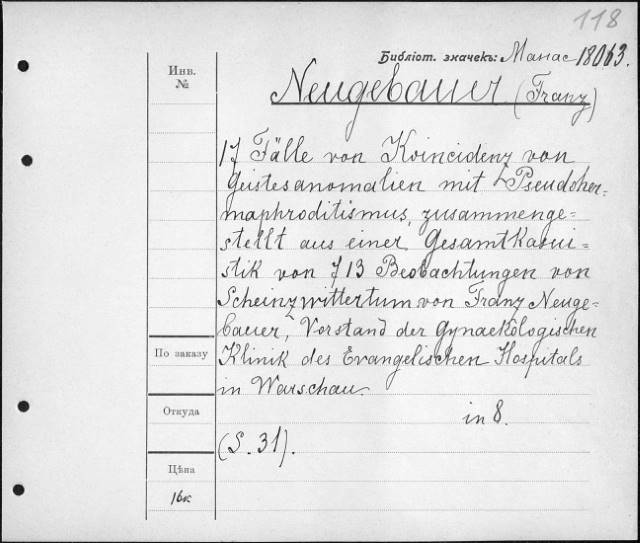 118
Библіот. значекъ: Манас 18063.
Инв.
№
Neugebauer (Franz)
17 Fälle von Koincidenz von
Geistesanomalien mit Pseudoher-
maphroditismus, zusammenge-
stellt aus einer Gesamtkasui-
stik von 713 Beobachtungen von
Scheinzwittertum von Franz Neuge-
bauer, Vorstand der Gynaekologischen
По заказу
Klinik des Evangelischen Hospitals
in Warschau.
Откуда
in 8.
(S. 31).
Цѣна
16к